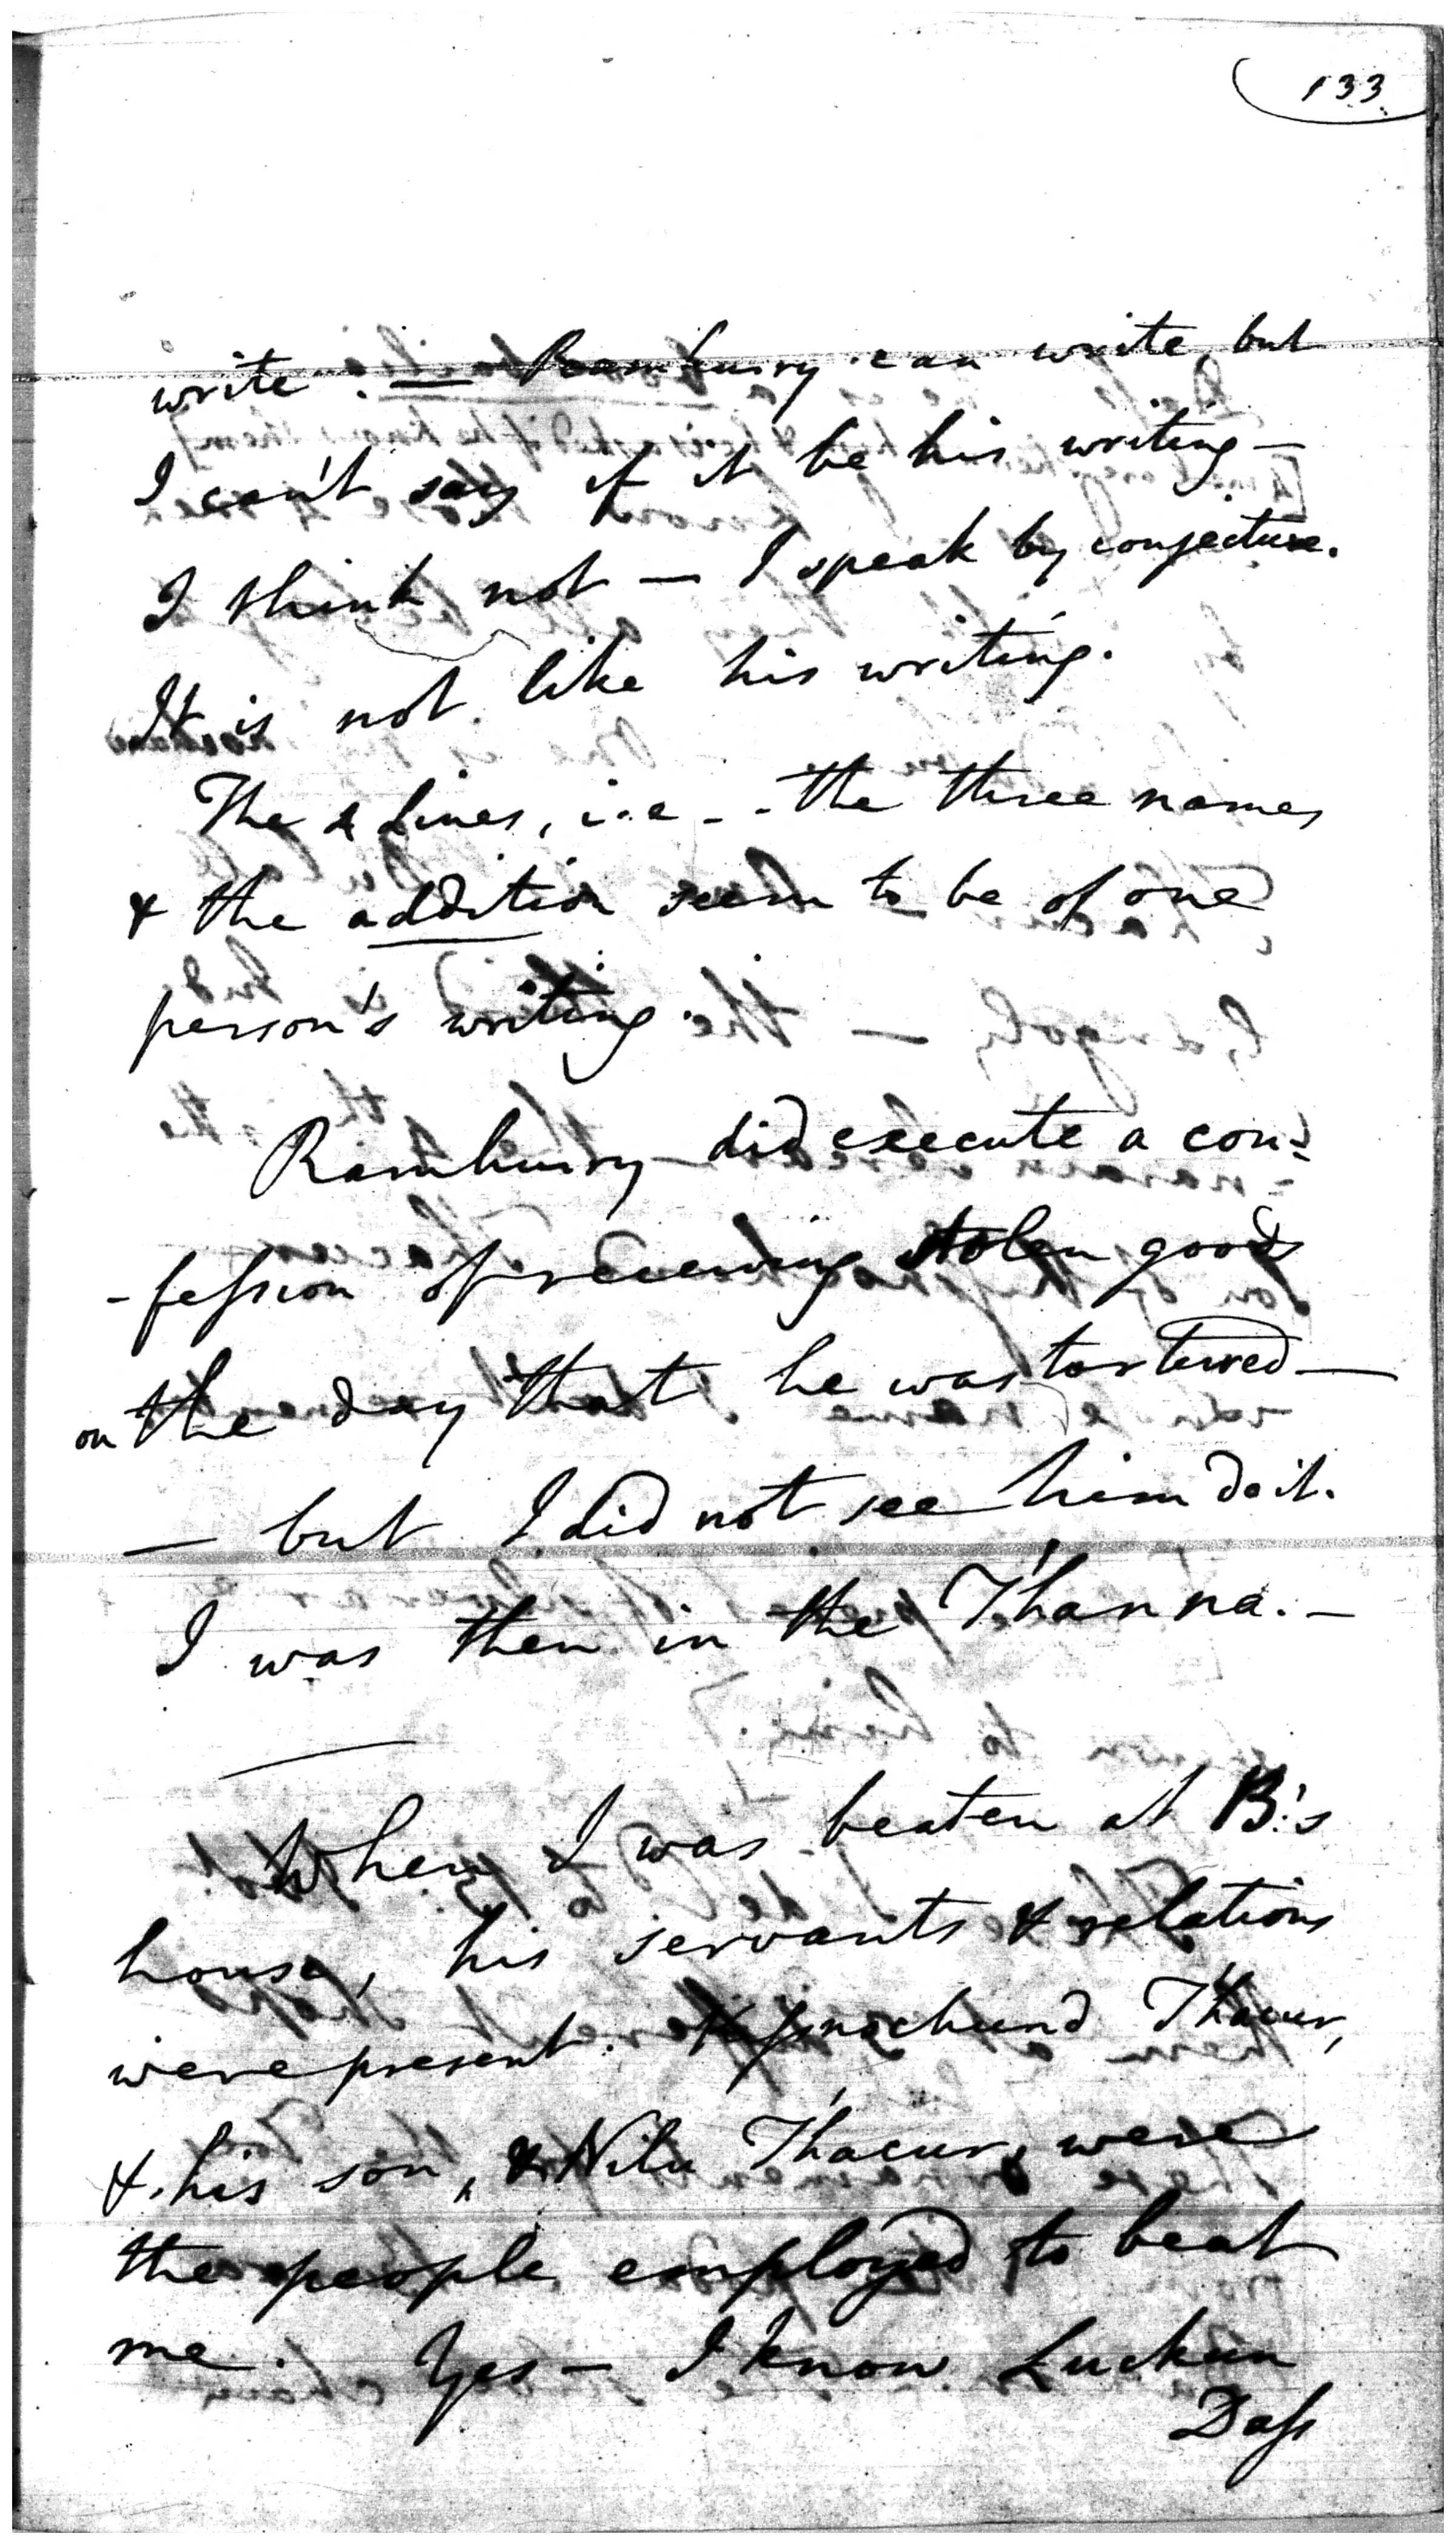 133
write. — Ramhurry can write, but
I can't say if it be his writing —
I think not — I speak by conjecture.
It is not like his writing.
The & lines, i.e - - the three names
& the addition seem to be of one
person's writing.
Ramhurry did execute a con=
-fession of receiving stolen goods
on the day that he was tortured —
— but I did not see him do it.
I was then in the Thanna. —
When I was beaten at B.'s
house, his servants & relations
were present. Thacur,
& his son, & Nilu Thacur, were
the people employed to beat
me. Yes — I know Luckun
Dass